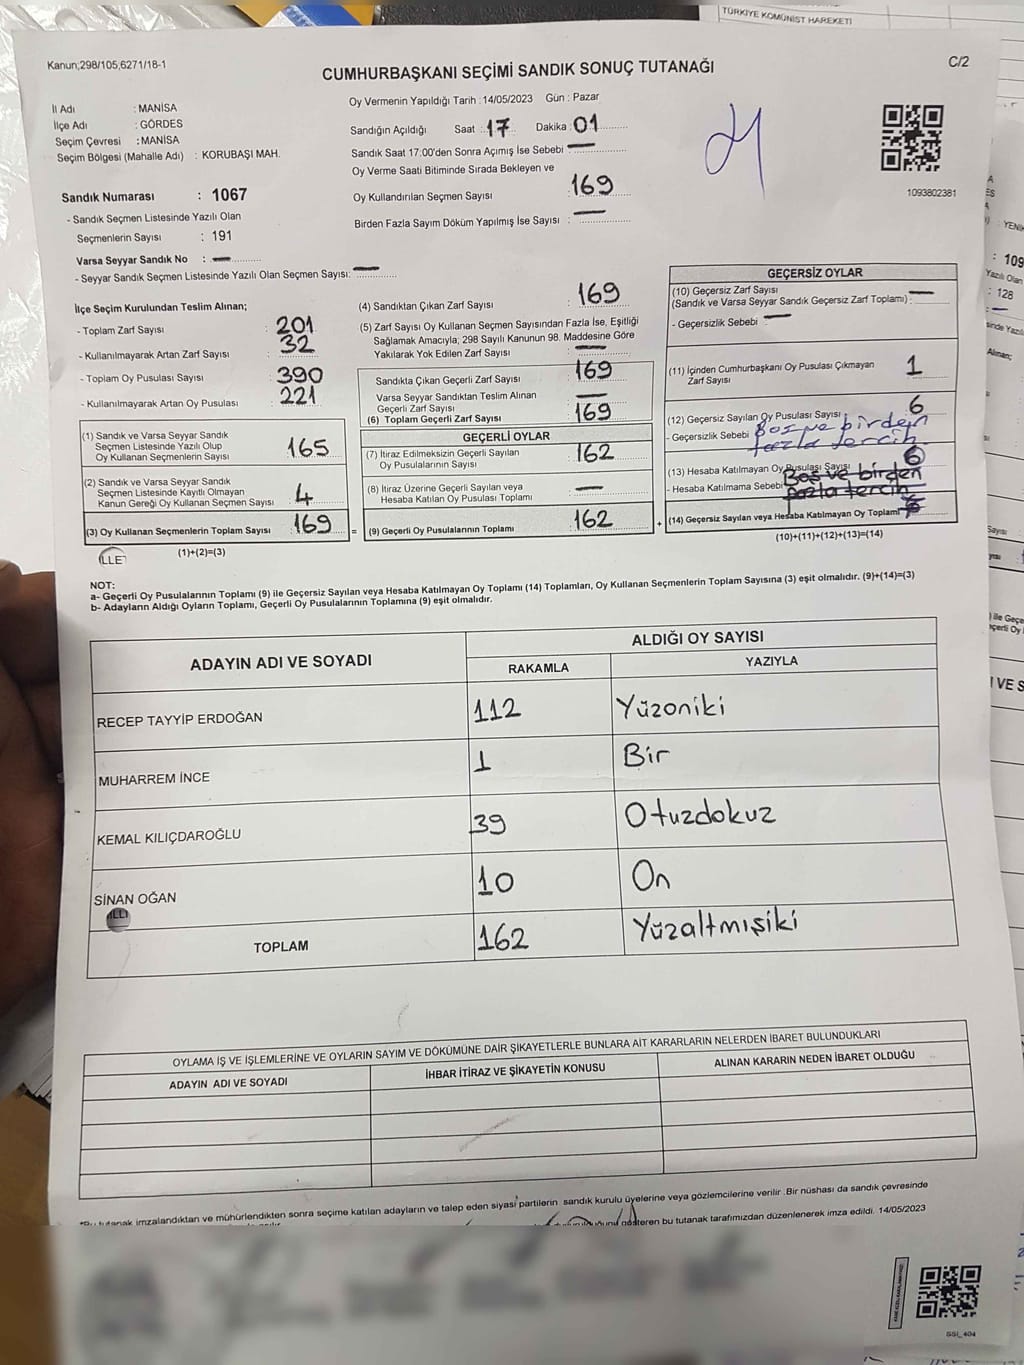 TÜRKİYE KOMÜNİST HAREKETİ
Kanun;298/105,6271/18-1
C/2
CUMHURBAŞKANI SEÇİMİ SANDIK SONUÇ TUTANAĞI
İl Adı : MANİSA
İlçe Adı : GÖRDES
Seçim Çevresi : MANİSA
Seçim Bölgesi (Mahalle Adı) : KORUBAŞI MAH.
Oy Vermenin Yapıldığı Tarih :14/05/2023 Gün : Pazar
Sandığın Açıldığı Saat : 17 Dakika : 01
Sandık Saat 17:00'den Sonra Açımış İse Sebebi : —
Oy Verme Saati Bitiminde Sırada Bekleyen ve
Oy Kullandırılan Seçmen Sayısı : 169
Birden Fazla Sayım Döküm Yapılmış İse Sayısı : —
1093802381
Sandık Numarası : 1067
- Sandık Seçmen Listesinde Yazılı Olan
Seçmenlerin Sayısı : 191
Varsa Seyyar Sandık No : —
- Seyyar Sandık Seçmen Listesinde Yazılı Olan Seçmen Sayısı: —
İlçe Seçim Kurulundan Teslim Alınan;
- Toplam Zarf Sayısı : 201
- Kullanılmayarak Artan Zarf Sayısı : 32
- Toplam Oy Pusulası Sayısı : 390
- Kullanılmayarak Artan Oy Pusulası : 221
(1) Sandık ve Varsa Seyyar Sandık
Seçmen Listesinde Yazılı Olup
Oy Kullanan Seçmenlerin Sayısı : 165
(2) Sandık ve Varsa Seyyar Sandık
Seçmen Listesinde Kayıtlı Olmayan
Kanun Gereği Oy Kullanan Seçmen Sayısı : 4
(3) Oy Kullanan Seçmenlerin Toplam Sayısı : 169 =
(1)+(2)=(3)
(4) Sandıktan Çıkan Zarf Sayısı : 169
(5) Zarf Sayısı Oy Kullanan Seçmen Sayısından Fazla İse, Eşitliği
Sağlamak Amacıyla; 298 Sayılı Kanunun 98. Maddesine Göre
Yakılarak Yok Edilen Zarf Sayısı : —
Sandıkta Çıkan Geçerli Zarf Sayısı : 169
Varsa Seyyar Sandıktan Teslim Alınan
Geçerli Zarf Sayısı : —
(6) Toplam Geçerli Zarf Sayısı : 169
GEÇERLİ OYLAR
(7) İtiraz Edilmeksizin Geçerli Sayılan
Oy Pusulalarının Sayısı : 162
(8) İtiraz Üzerine Geçerli Sayılan veya
Hesaba Katılan Oy Pusulası Toplamı : —
(9) Geçerli Oy Pusulalarının Toplamı : 162 +
GEÇERSİZ OYLAR
(10) Geçersiz Zarf Sayısı
(Sandık ve Varsa Seyyar Sandık Geçersiz Zarf Toplamı) : —
- Geçersizlik Sebebi : —
(11) İçinden Cumhurbaşkanı Oy Pusulası Çıkmayan
Zarf Sayısı : 1
(12) Geçersiz Sayılan Oy Pusulası Sayısı : 6
- Geçersizlik Sebebi : Boş ve birden
fazla tercih
(13) Hesaba Katılmayan Oy Pusulası Sayısı : 6
- Hesaba Katılmama Sebebi : Boş ve birden
fazla tercih
(14) Geçersiz Sayılan veya Hesaba Katılmayan Oy Toplamı :
(10)+(11)+(12)+(13)=(14)
NOT:
a- Geçerli Oy Pusulalarının Toplamı (9) ile Geçersiz Sayılan veya Hesaba Katılmayan Oy Toplamı (14) Toplamları, Oy Kullanan Seçmenlerin Toplam Sayısına (3) eşit olmalıdır. (9)+(14)=(3)
b- Adayların Aldığı Oyların Toplamı, Geçerli Oy Pusulalarının Toplamına (9) eşit olmalıdır.
ADAYIN ADI VE SOYADI
ALDIĞI OY SAYISI
RAKAMLA YAZIYLA
RECEP TAYYİP ERDOĞAN 112 Yüzoniki
MUHARREM İNCE 1 Bir
KEMAL KILIÇDAROĞLU 39 Otuzdokuz
SİNAN OĞAN 10 On
TOPLAM 162 Yüzaltmışiki
OYLAMA İŞ VE İŞLEMLERİNE VE OYLARIN SAYIM VE DÖKÜMÜNE DAİR ŞİKAYETLERLE BUNLARA AİT KARARLARIN NELERDEN İBARET BULUNDUKLARI
ADAYIN ADI VE SOYADI İHBAR İTİRAZ VE ŞİKAYETİN KONUSU ALINAN KARARIN NEDEN İBARET OLDUĞU
*Bu tutanak imzalandıktan ve mühürlendikten sonra seçime katılan adayların ve talep eden siyasi partilerin sandık kurulu üyelerine veya gözlemcilerine verilir. Bir nüshası da sandık çevresinde
gösteren bu tutanak tarafımızdan düzenlenerek imza edildi. 14/05/2023